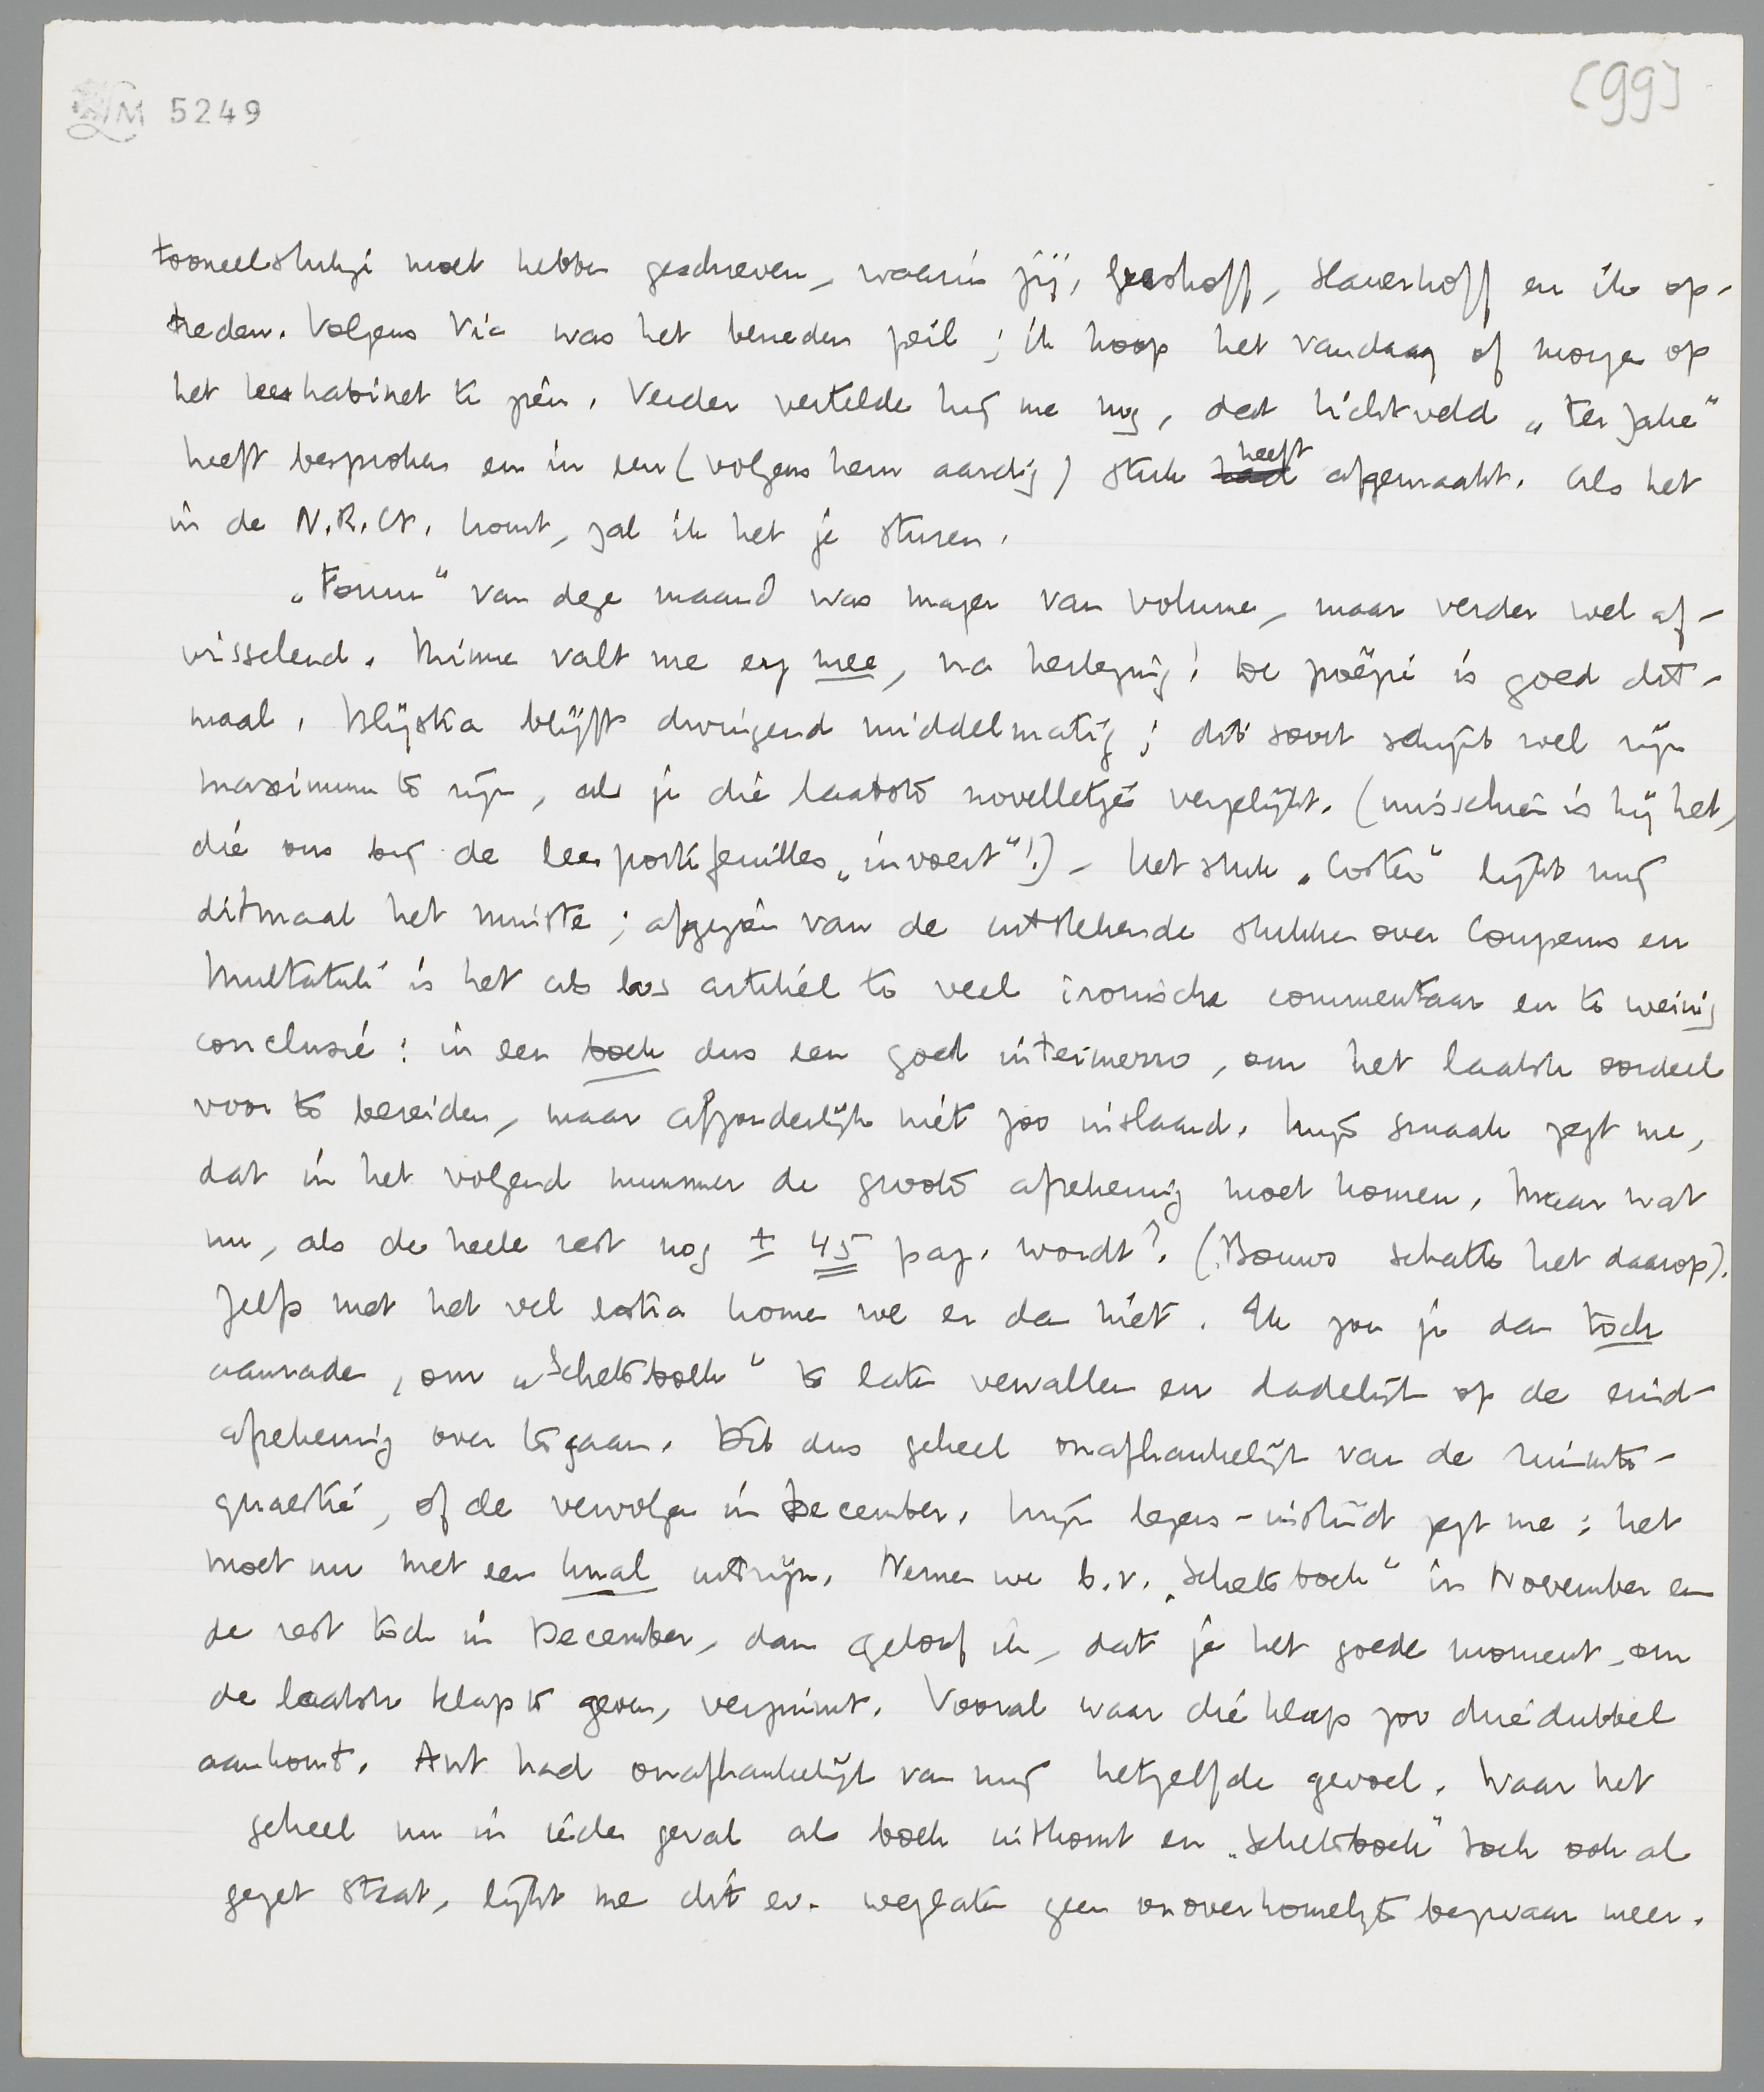 LM 5249
[99]
tooneelstukje moet hebben geschreven, waarin jij, Greshoff, Slauerhoff en ik op-
treden. Volgens Vic was het beneden peil; ik hoop het vandaag of morgen op
het leeskabinet te zien. Verder vertelde hij me nog, dat Lichtveld „Ter Zake”
heeft besproken en in een (volgens hem aardig) stuk had heeft afgemaakt. Als het
in de N.R.Ct. komt, zal ik het je sturen.
„Forum” van deze maand was mager van volume, maar verder wel af-
wisselend. Minne valt me erg mee, na herlezing! De poëzie is goed dit-
maal. Blijstra blijft dwingend middelmatig; dit soort schijnt wel zijn
maximum te zijn, als je die laatste novelletjes vergelijkt. (misschien is hij het,
die ons bij de leesportefeuilles „invoert”!) – Het stuk „Coster” lijkt mij
ditmaal het minste; afgezien van de uitstekende stukken over Couperus en
Multatuli is het als los artikel te veel ironische commentaar en te weinig
conclusie: in een boek dus een goed intermezzo, om het laatste oordeel
voor te bereiden, maar afzonderlijk niet zoo inslaand. Mijn smaak zegt me,
dat in het volgend nummer de groote afrekening moet komen. Maar wat
nu, als de heele rest nog ± 45 pag. wordt? (Bouws schatte het daarop).
Zelfs met het vel extra komen we er dan niet. Ik zou je dan toch
aanraden, om „Schetsboek” te laten vervallen en dadelijk op de eind-
afrekening over te gaan. Dit dus geheel onafhankelijk van de ruimte-
quaestie, of de vervolgen in December. Mijn lezers-instinct zegt me: het
moet nu met een knal uit zijn. Nemen we b.v. „Schetsboek” in November en
de rest toch in December, dan geloof ik, dat je het goede moment, om
de laatste klap te geven, verzuimt. Vooral waar die klap zoo driedubbel
aankomt. Ant had onafhankelijk van mij hetzelfde gevoel. Waar het
geheel nu in ieder geval als boek uitkomt en „Schetsboek” toch ook al
gezet staat, lijkt me dit ev. weglaten geen onoverkomelijk bezwaar meer.